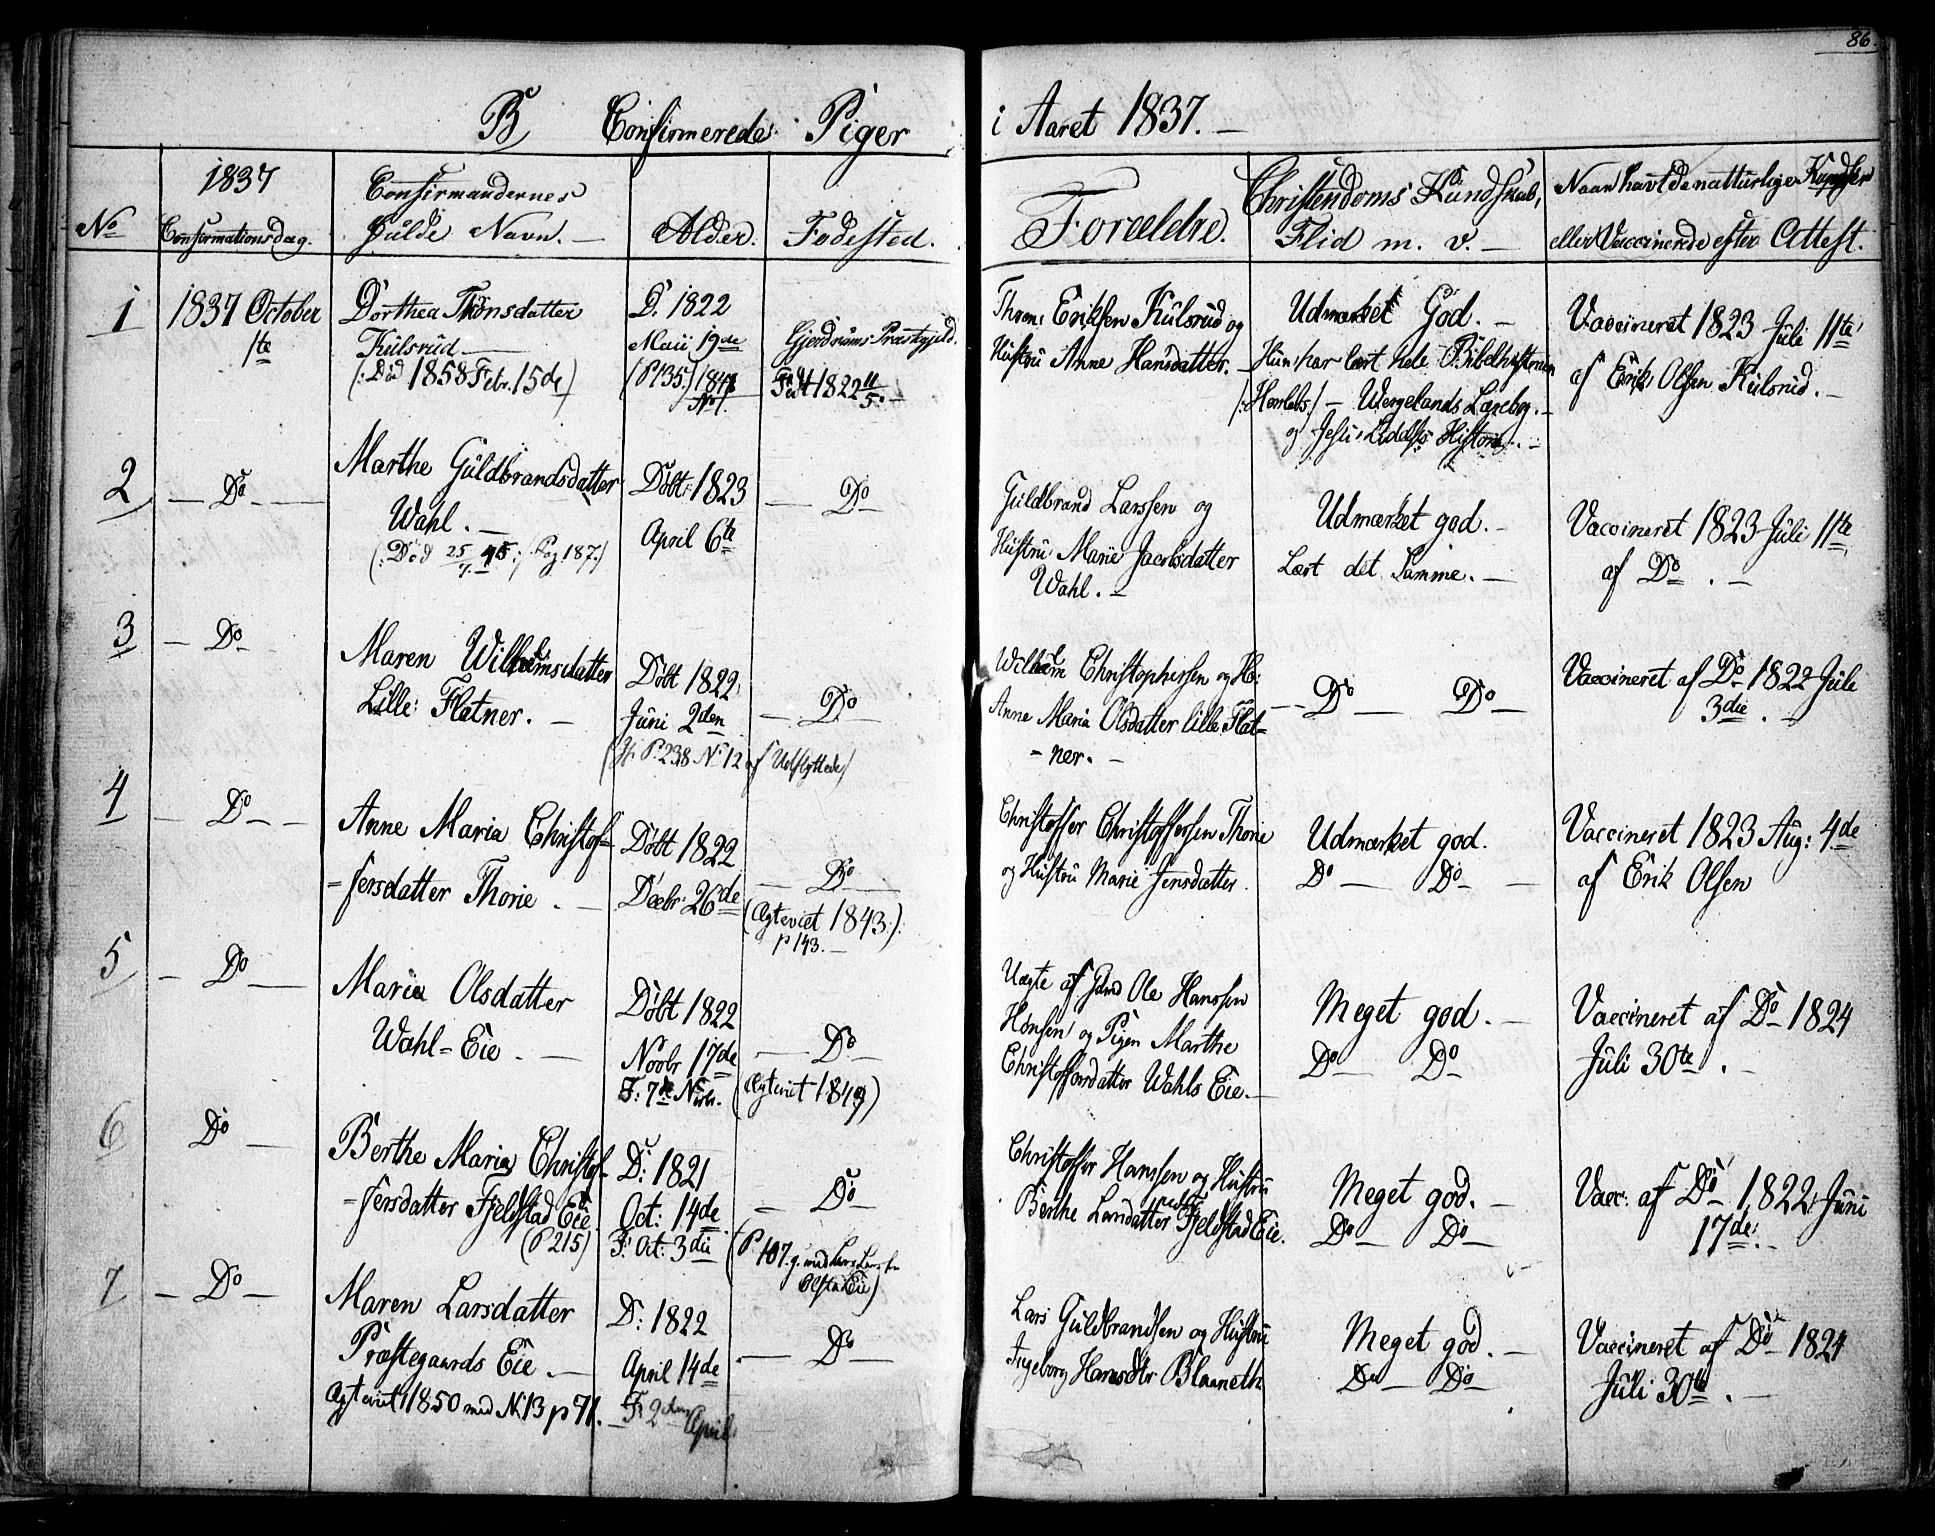 86.
B Confirmerede Piger i Aaret 1837. —
No
1837
Confirmationsdag.
Confirmandernes
fulde Navn. —
Alder.
Fødested.
Forældre.
Christendoms Kundskab,
Flid m. v. —
Naar havt de naturlige Kopper
eller Vaccinerede efter Attest.
1
1837 October
1te
Dorthea Thronsdatter
Kulsrud —
(: Død 1858 Febr. 15de)
D. 1822
Maii 19de
(P 135.)
Gjerdrums Præstegjeld.
Født 1822 11/5. —
Thron Eriksen Kulsrud og
Hustru Anne Hansdatter. —
Udmærket God. —
Hun har lært hele Bibelhistorien
/:Herslebs:/ — Wergelands Lærebog. —
og Jesu Lidelses Historie. —
Vaccineret 1823 Juli 11te
af Erik Olsen Kulsrud. —
2
— Do —
Marthe Guldbrandsdatter
Wahl. —
(: Død 25/7 45 :/ Pag 187.)
Døbt 1823
April 6te
— Do
Guldbrand Larssen og
Hustru Marie Jacobsdatter
Wahl. —
Udmærket god. —
Lært det Samme. —
Vaccineret 1823 Juli 11te
af Do . —
3
— Do —
Maren Wilhelmsdatter
Lille Flatner. —
Døbt 1822
Juni 2den
(P. 238 No 12 af Udflyttede)
— Do —
Wilhelm Christophersen og H:
Anne Maria Olsdatter lille Flat=
= ner. —
— Do — Do —
Vaccineret af Do 1822 Juli
3die . —
4
— Do —
Anne Maria Christof=
= fersdatter Thorie . —
Døbt 1822
Decbr: 26de
— Do —
(Ægteviet 1843.):
p 143. —
Christoffer Christoffersen Thorie
og Hustru Marie Jensdatter.
Udmærket god.
Do — Do —
Vaccineret 1823 Aug: 4de
af Erik Olsen
5
— Do —
Maria Olsdatter
Wahl=Eie . —
Døbt 1822
Novbr 17de
F: 7de Novbr.
— Do —
(Ægteviet 1849)
Uægte af Ole Hanssen
Hønsen og Pigen Marthe
Christoffersdatter Wahls Eie. —
Meget god. —
Do — Do
Vaccineret af Do 1824
Juli 30te . —
6
Do —
Berthe Maria Christof=
= fersdatter Fjeldstad Eie
(P 215)
D: 1821
Oct: 14de
F: Oct: 3die
— Do —
(P. 107. g. med Lars Larsen
Eie)
Christoffer Hanssen og Hustru
Berthe Larsdatter Fjeldstad Eie.
Meget god. —
Do — Do —
Vacc: af Do 1822 Juni
17de. —
7
— Do —
Maren Larsdatter
Præstegaards Eie. —
Ægteviet 1850 med No 13 p 71.
D: 1822
April 14de
— F. 2den April
— Do —
Lars Guldbrandsen og Hustru
Ingeborg Hansdtr Blaaneth
Meget god. —
Do — Do
Vaccineret af Do 1824
Juli 30te . —